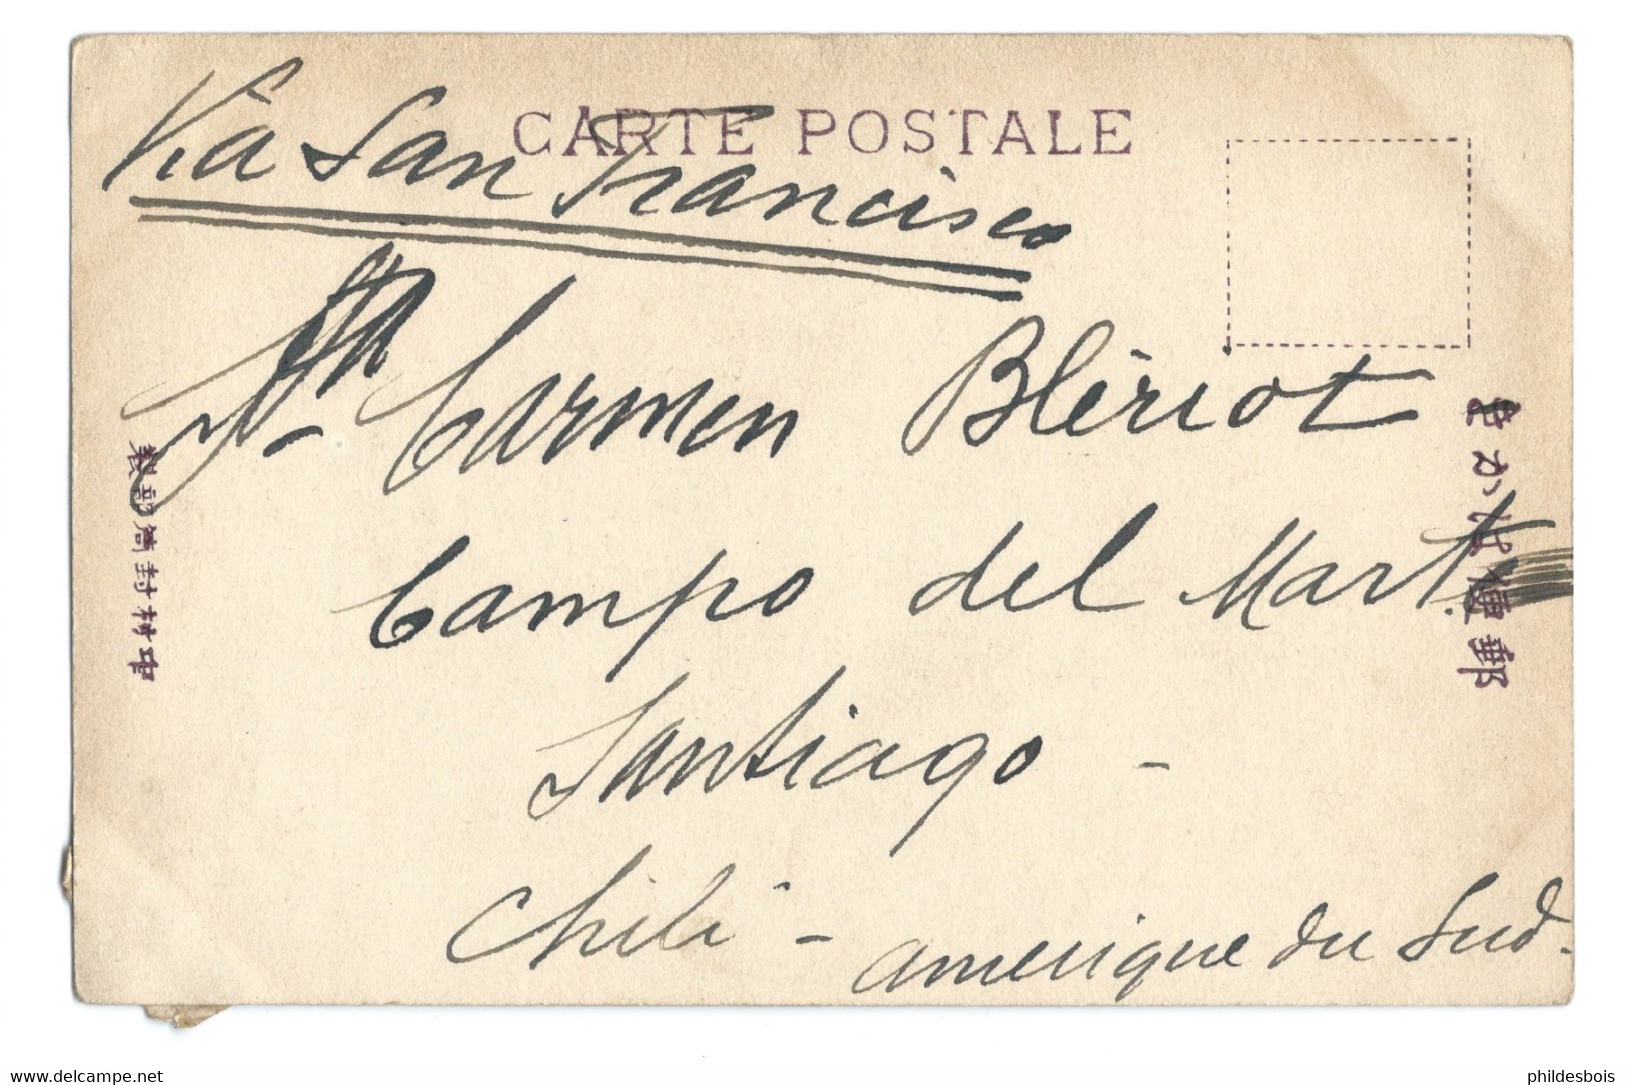 CARTE POSTALE
Via San Francisco
Sta Carmen Blériot
Campo del Mart
Santiago -
Chili - amerique du Sud.
郵便はかき
中村封筒部製
www.delcampe.net
phildesbois